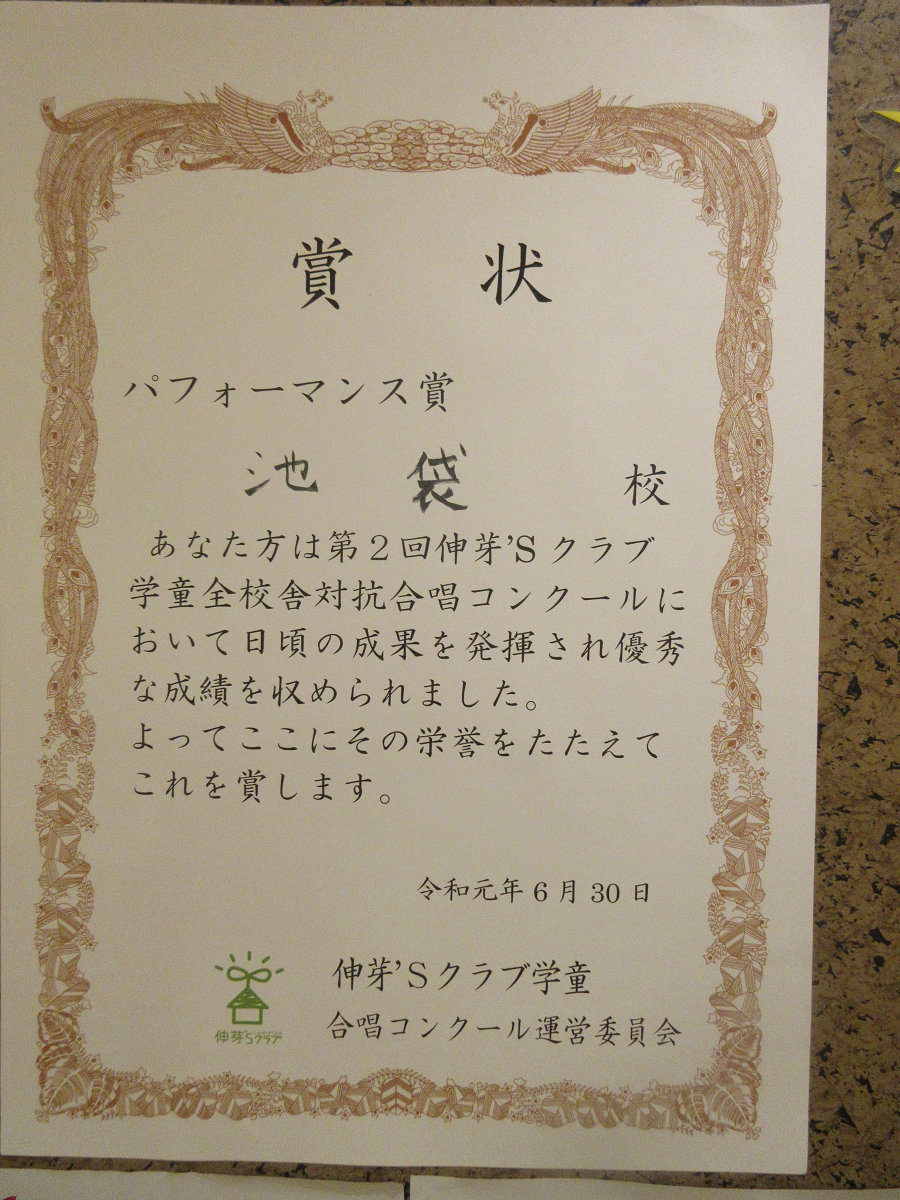 賞状
パフォーマンス賞
池袋 校
あなた方は第2回伸芽'Sクラブ
学童全校舎対抗合唱コンクールに
おいて日頃の成果を発揮され優秀
な成績を収められました。
よってここにその栄誉をたたえて
これを賞します。
令和元年6月30日
伸芽'Sクラブ学童
合唱コンクール運営委員会
伸芽'Sクラブ